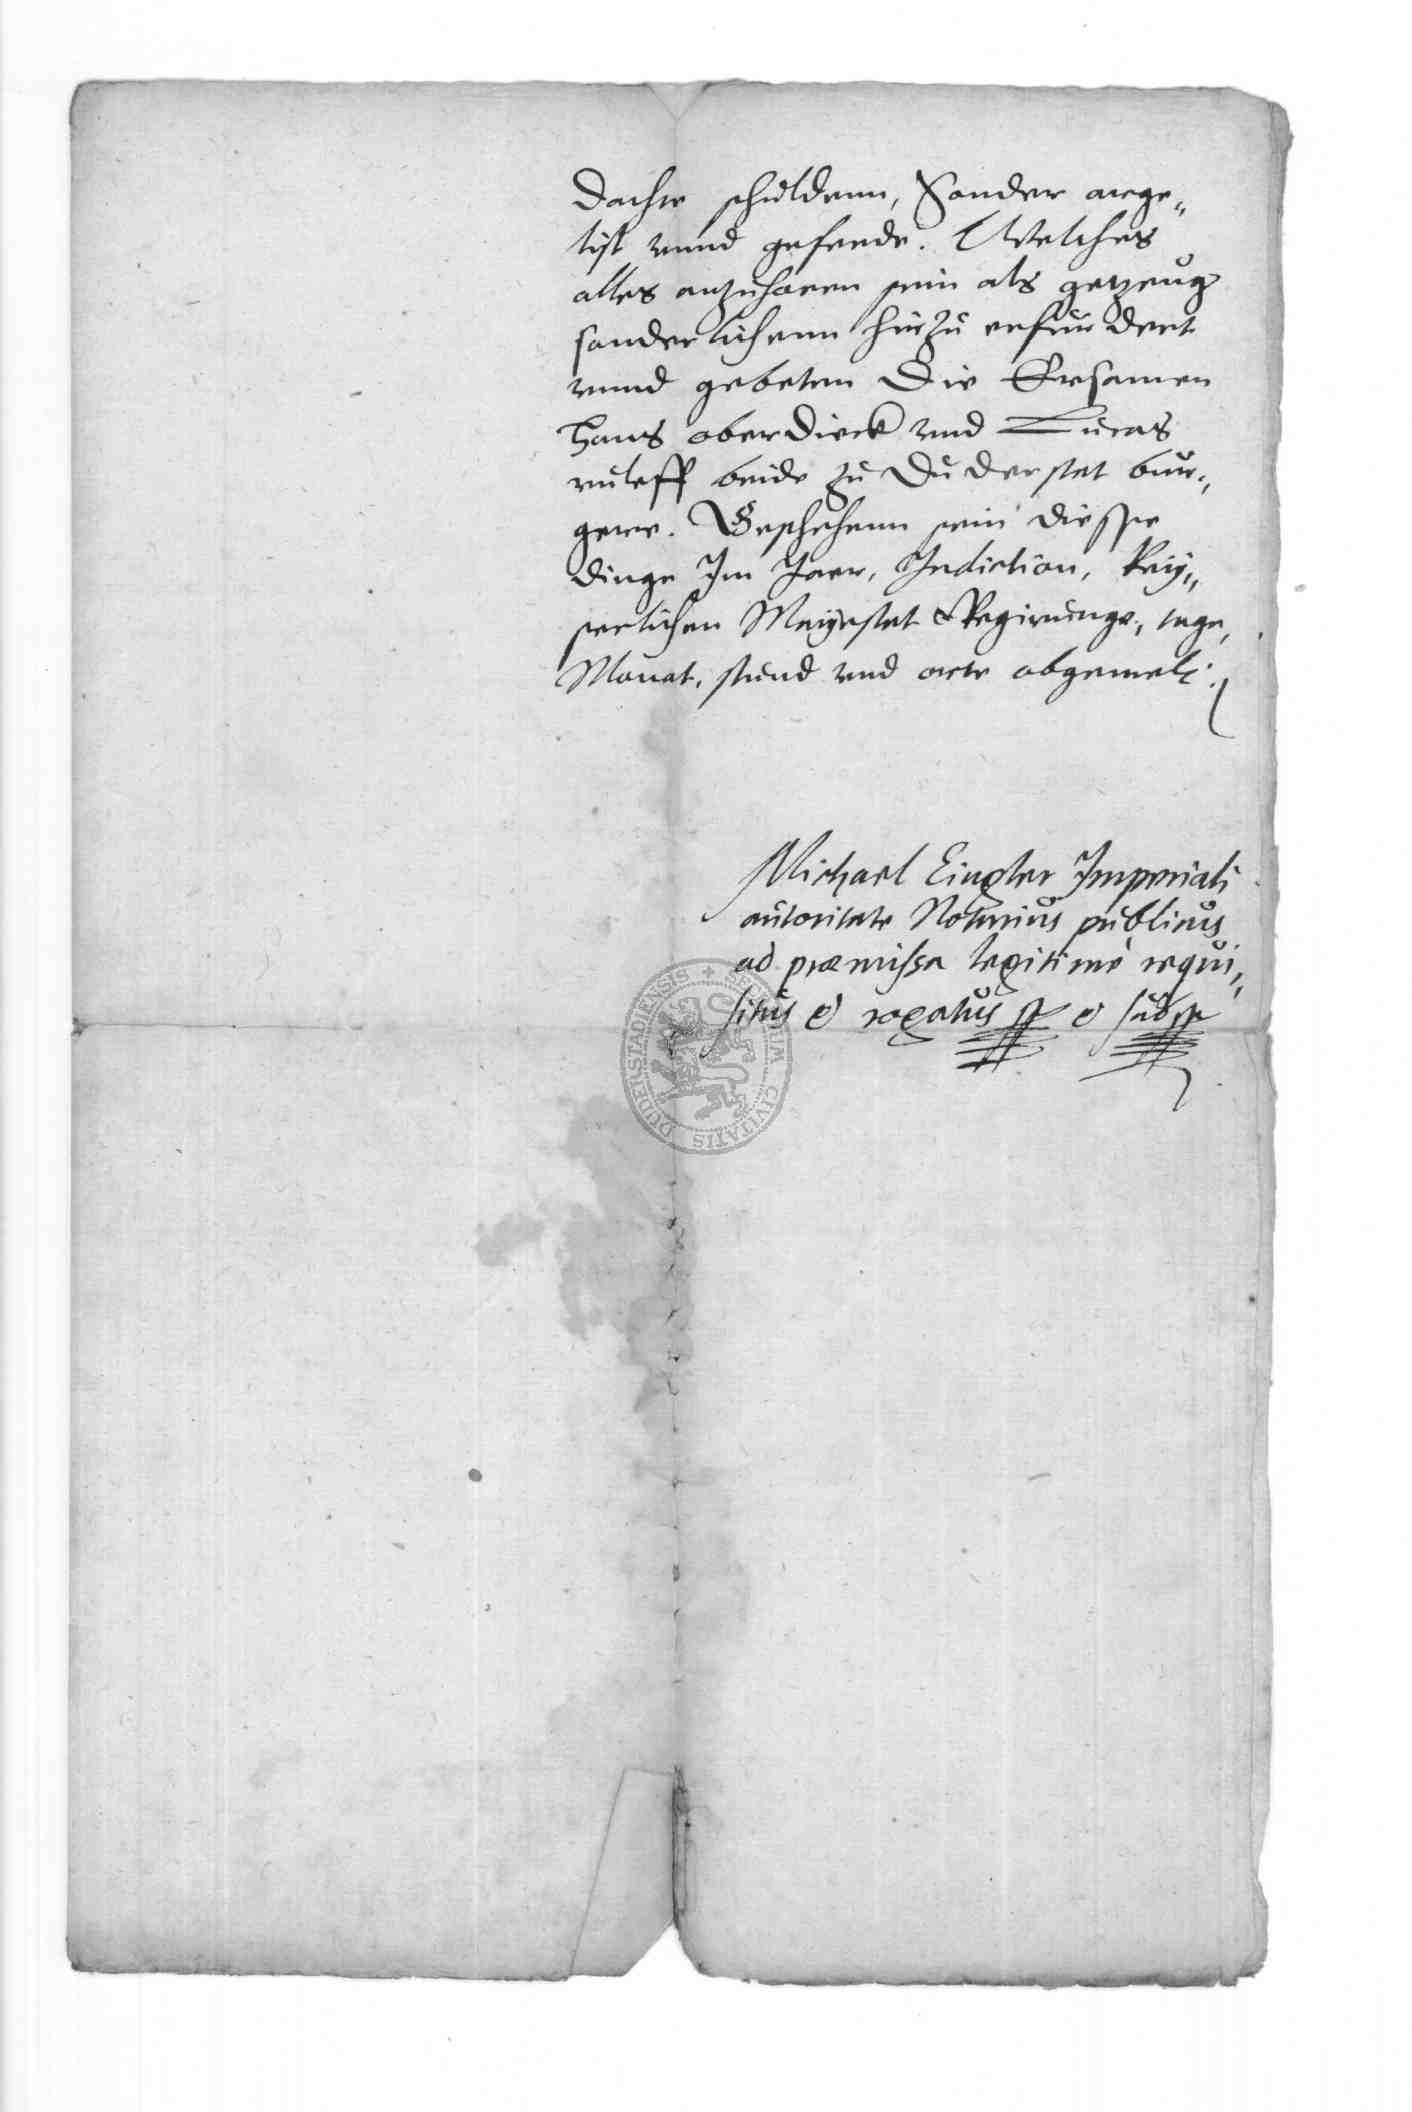 dachte schuldenn, Sonder arge„
list unnd geferde. Welches
alles anzuhoren sein als getzeug
sonderlichenn hirzu erfurdert
unnd gebeten Die Ersamen
Hans oberdieck und Lucas
ruleff beide zu Duderstat bur„
gere. Geschehenn sein diesse
dinge Im Jaer, Indiction, keÿ„
serlichen Maÿestat Regirunge, tage,
Monat, stund und orte obgemelt.
Michael Eingler Imperiali
autoritate Notarius publicus
ad præmissa legitimè requi„
situs et rogatus sst et subsst
SECRETUM CIVITATIS DUDERSTADIENSIS